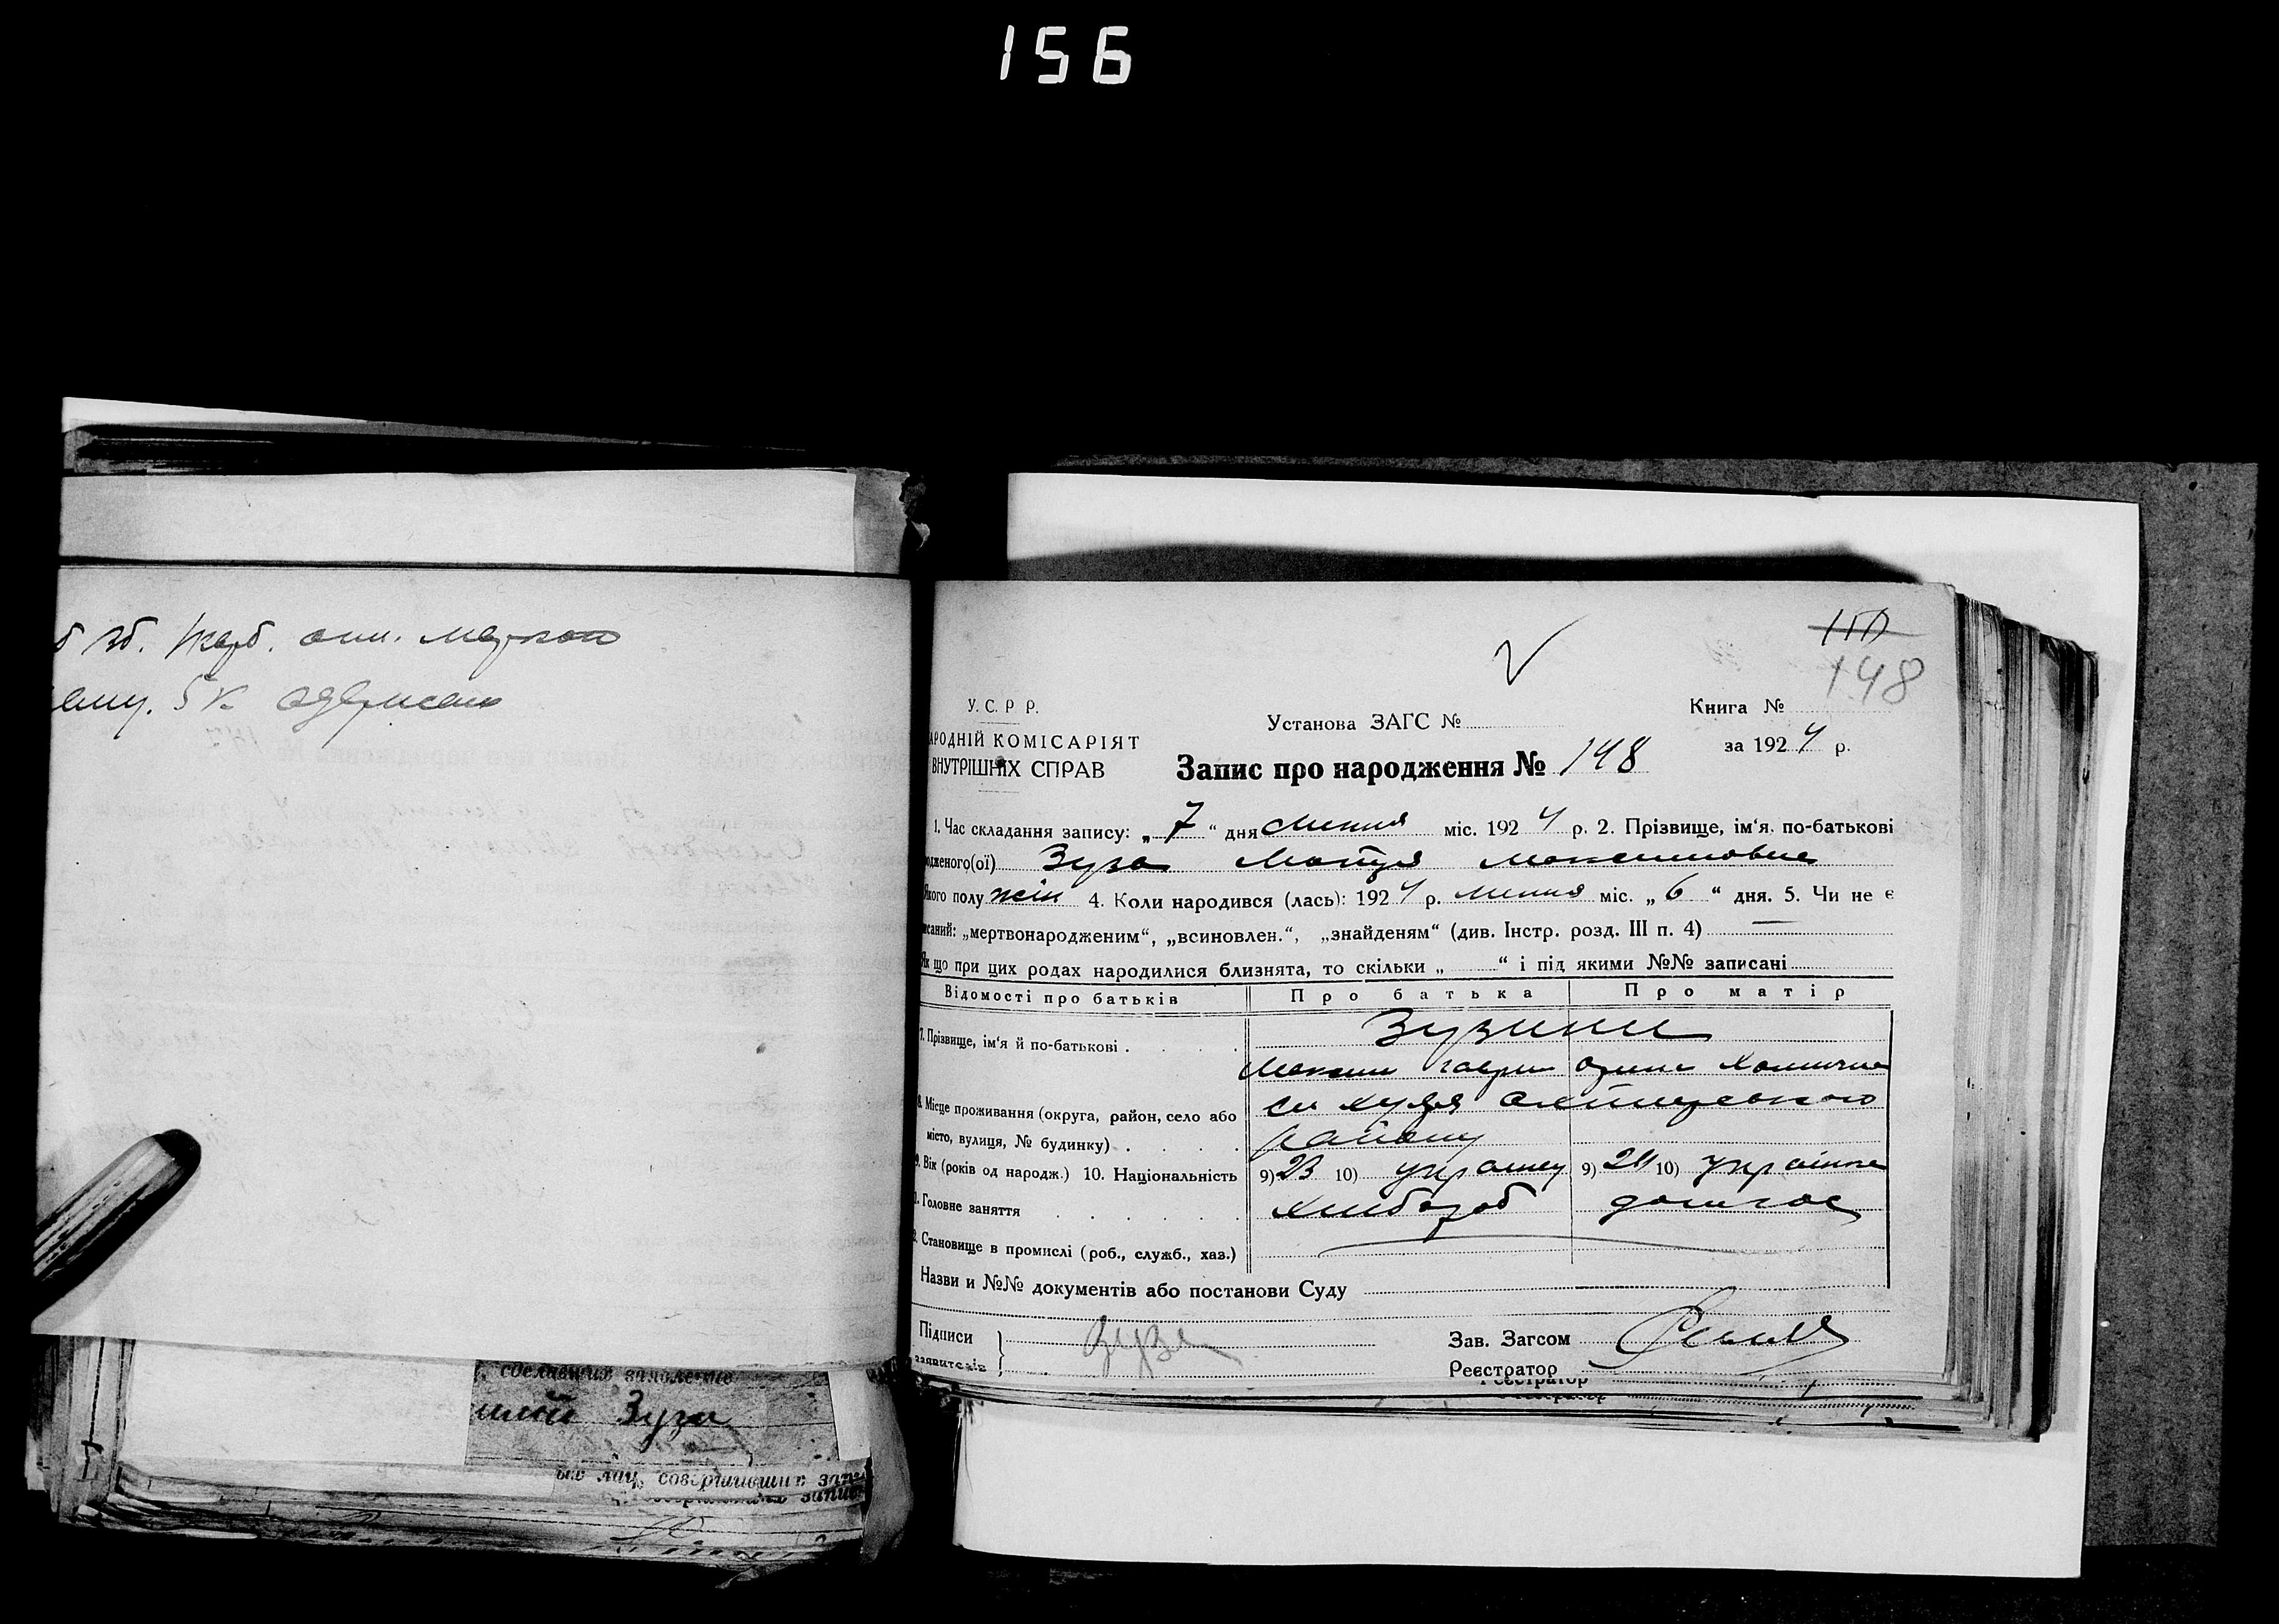 156
зб. Жовб. опл. маркою
5 к. одержано
составивших заявление
Зуза
лиц, совершивших запи
148
У. С. Р. Р.
АРОДНІЙ КОМІСАРІЯТ
ВНУТРІШНІХ СПРАВ
Установа ЗАГС №
Книга №
за 1924 р.
Запис про народження № 148
1. Час складання запису: „7“ дня Липня міс. 1924 р. 2. Прізвище, ім'я, по-батькові
одженого(ої) Зуза Мотря Максимовна
Якого полу жін 4. Коли народився (лась): 1924 р. липня міс. „6“ дня. 5. Чи не є
исаний: „мертвонародженим“, „всиновлен.“, „знайденям“ (див. Інстр. розд. III п. 4) —
Як що при цих родах народилися близнята, то скільки „ “ і під якими №№ записані
Відомості про батьків Про батька Про матір
7. Прізвище, ім'я й по-батькові . . . . Зузини
Максим Гаври Орина Хомична
8. Місце проживання (округа, район, село або
місто, вулиця, № будинку) . . . . району
9. Вік (років од народж.) 10. Національність 9) 23 10) украинец 9) 24 10) українка
11. Головне заняття . . . . . . Хлібороб домгос
Становище в промислі (роб., служб., хаз.)
Назви и №№ документів або постанови Суду
Підписи
заявителів
Зуза
Зав. Загсом
Реєстратор
Реєстратор